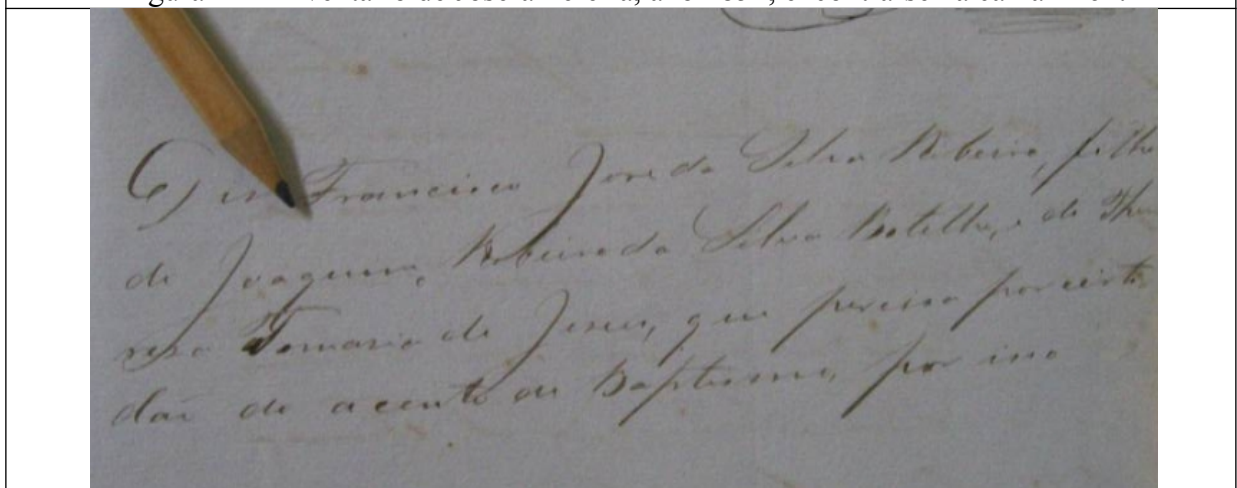 Diz Francisco Jose da Silva Ribeiro, filho
de Joaquim Ribeiro da Silva Botelho, e de The
resa de Jesus, que percisa por certi
dão de acento de Baptismo, por isso